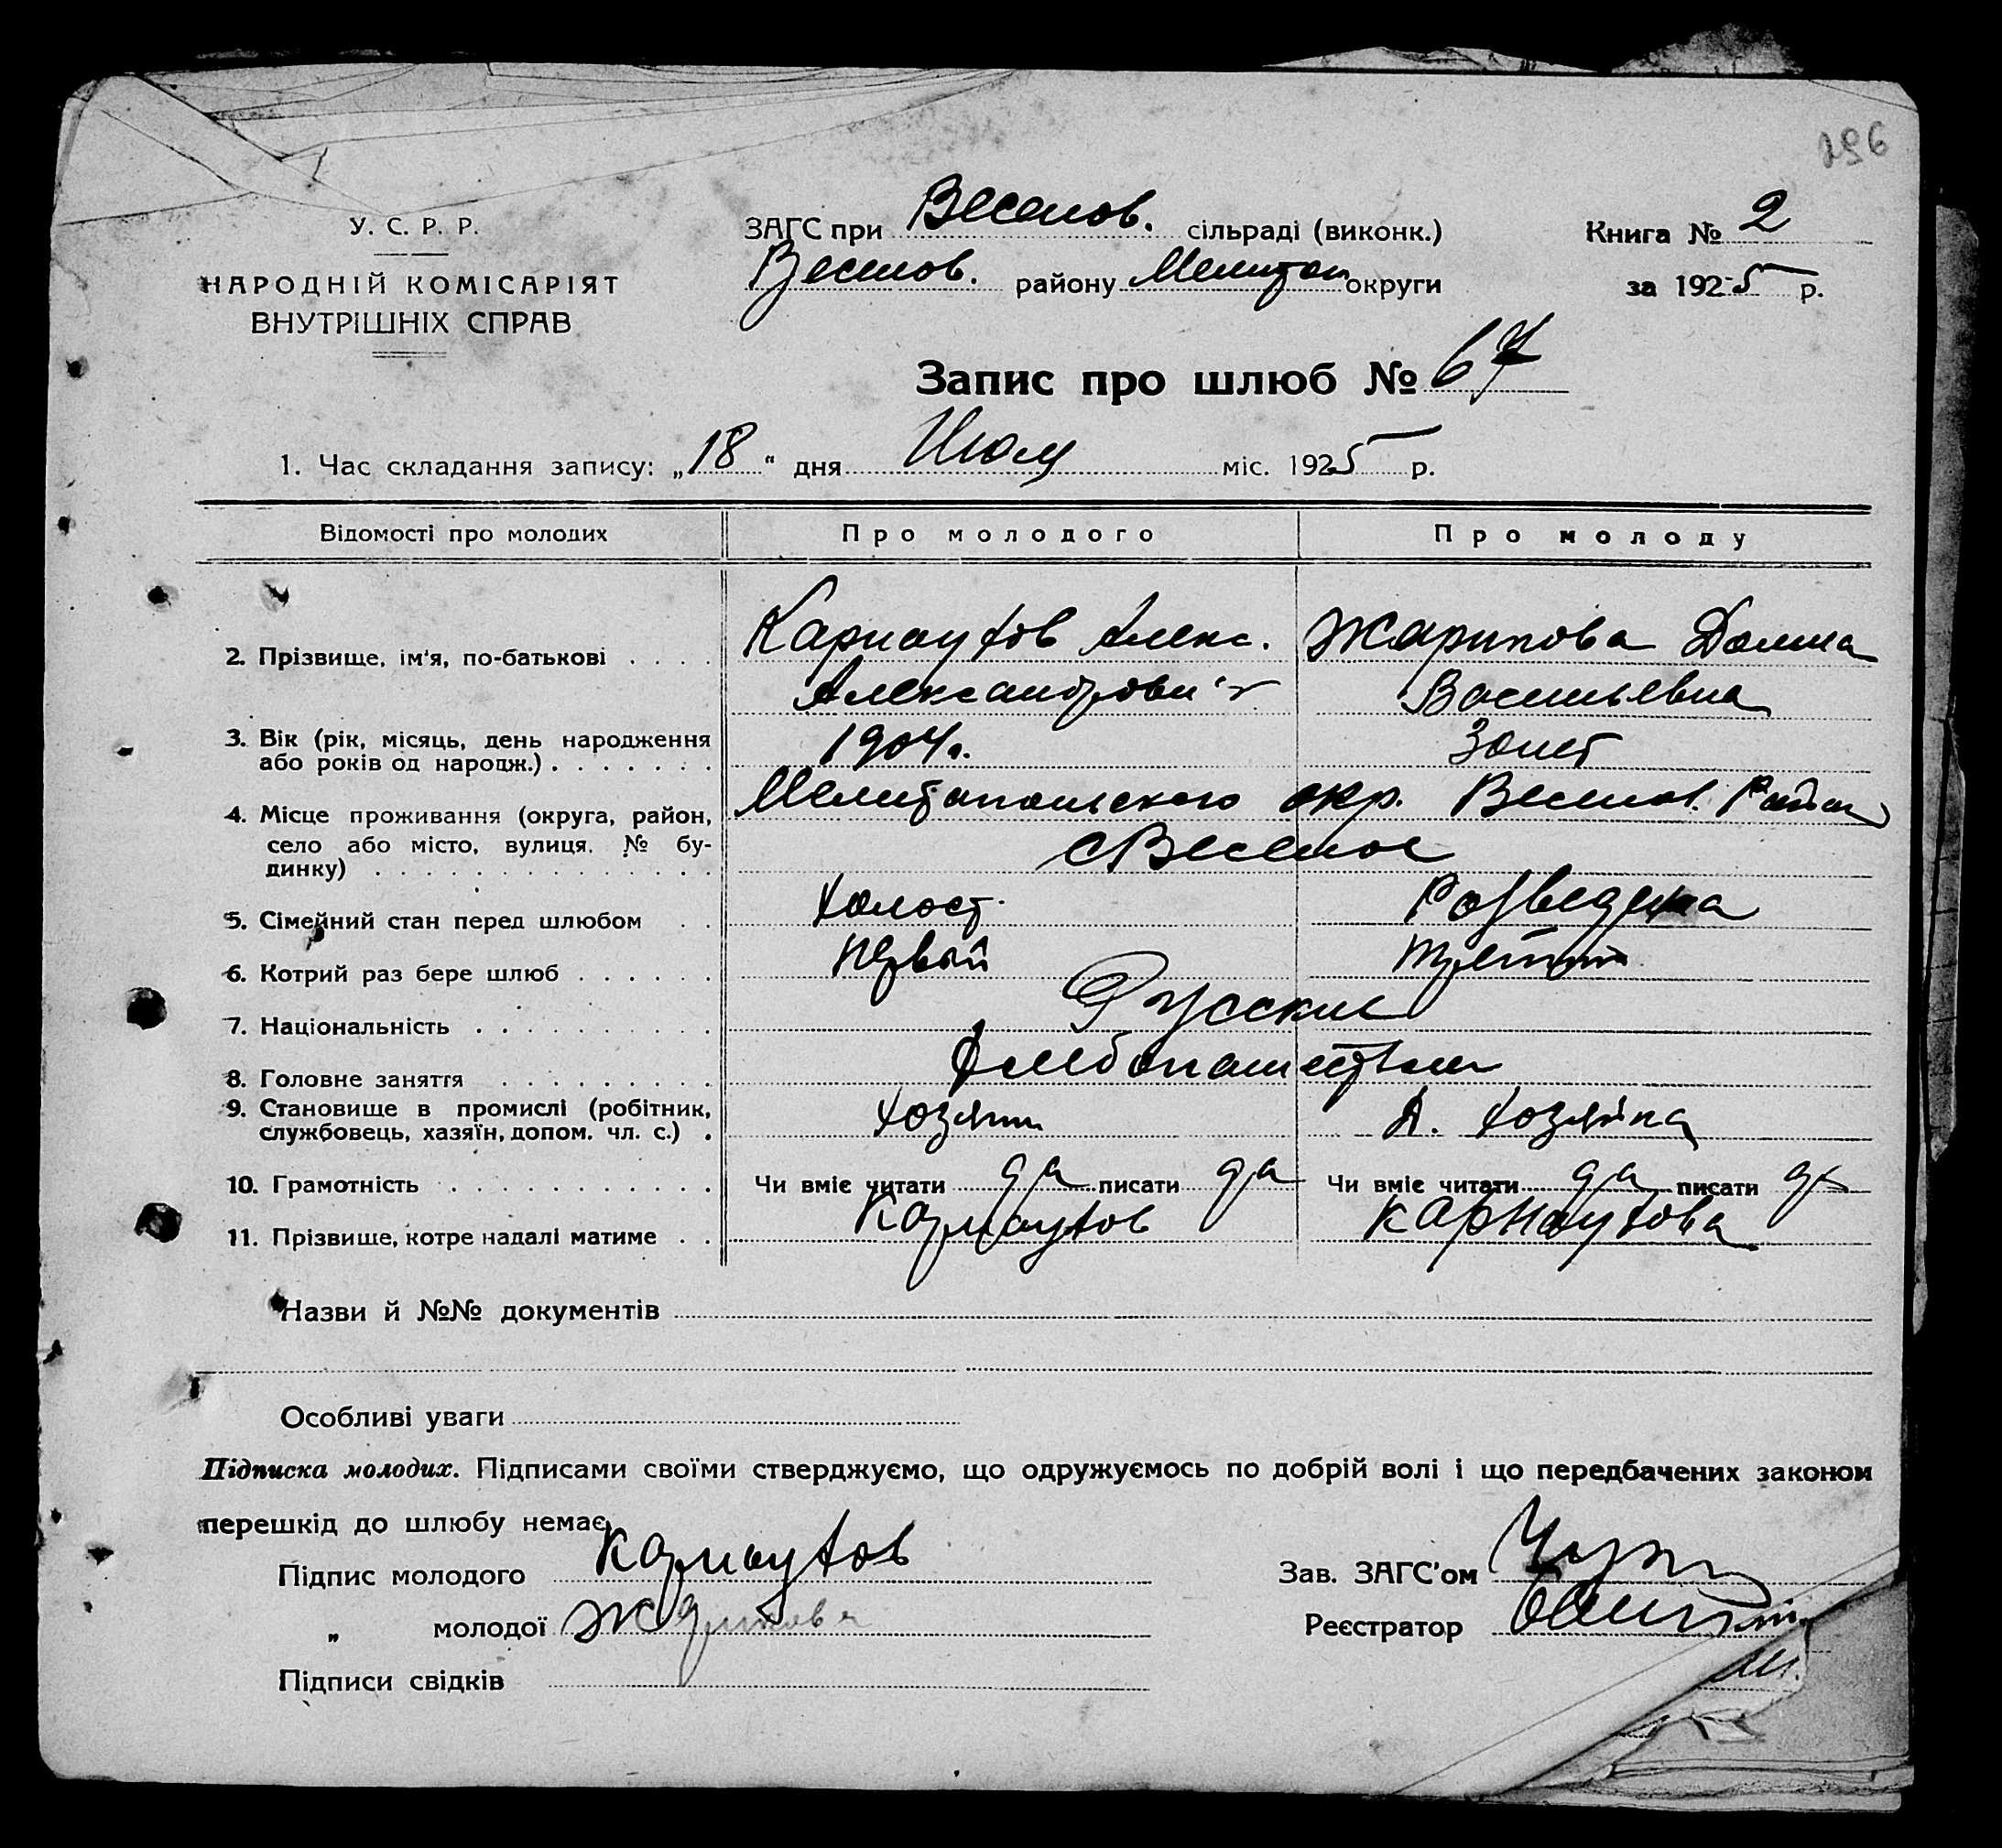 296
У. С. Р. Р.
НАРОДНІЙ КОМІСАРІЯТ
ВНУТРІШНІХ СПРАВ
ЗАГС при Веселов. сільраді (виконк.)
Веселов. району Мелитоп округи
Книга № 2
за 1925 р.
Запис про шлюб № 67
1. Час складання запису: „18“ дня Июля міс. 1925 р.
Відомості про молодих Про молодого Про молоду
2. Прізвище, ім'я, по-батькові . . . . Карнаухов Алекс. Жарикова
Александрович Васильевна
3. Вік (рік, місяць, день народження
або років од народж.) . . . . . . . 1904г. 30 лет
4. Місце проживання (округа, район,
село або місто, вулиця, № бу-
динку) . . . . . . . . . . . . . .
Мелитопольского окр. Веселов. Район
с Веселое
5. Сімейний стан перед шлюбом . . холост. Разведена
6. Котрий раз бере шлюб . . . . . . первый третий
7. Національність . . . . . . . . . . Русские
8. Головне заняття . . . . . . . . . Хлебопашество
9. Становище в промислі (робітник,
службовець, хазяїн, допом. чл. с.) . хозяин Д. хозяйка
10. Грамотність . . . . . . . . . . . Чи вміє читати да писати да Чи вміє читати да писати да
11. Прізвище, котре надалі матиме . . Карнаухов Карнаухова
Назви й №№ документів
Особливі уваги
Підписка молодих. Підписами своїми стверджуємо, що одружуємось по добрій волі і що передбачених законом
перешкід до шлюбу немає
Підпис молодого Карнаухов
Зав. ЗАГС'ом
„ молодої Жарикова
Реєстратор
Підписи свідків